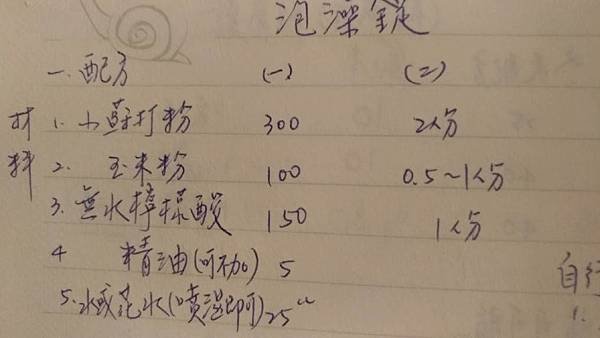 泡澡錠
一. 配方 (一) (二)
材料
1. 小蘇打粉 300 2份
2. 玉米粉 100 0.5~1份
3. 無水檸檬酸 150 1份
4 精油(可不加) 5
5. 水或花水(噴濕即可) 25
自行
1.